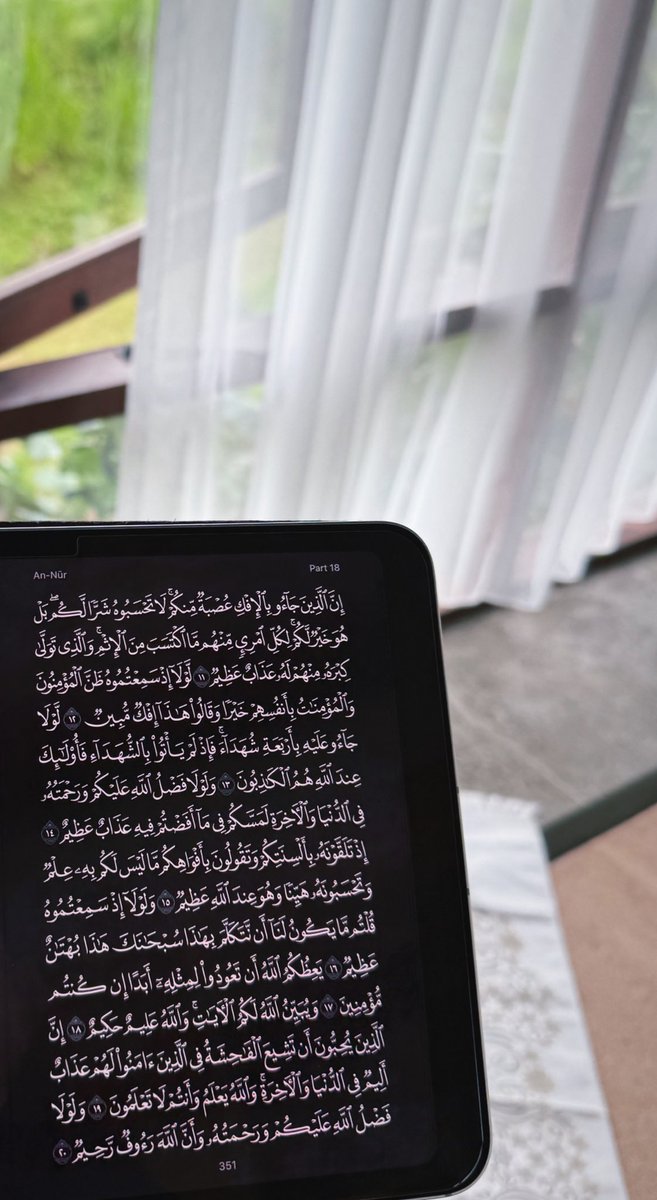 An-Nūr Part 18
إِنَّ ٱلَّذِينَ جَآءُو بِٱلْإِفْكِ عُصْبَةٌ مِّنكُمْ ۚ لَا تَحْسَبُوهُ شَرًّا لَّكُم ۖ بَلْ
هُوَ خَيْرٌ لَّكُمْ ۚ لِكُلِّ ٱمْرِئٍ مِّنْهُم مَّا ٱكْتَسَبَ مِنَ ٱلْإِثْمِ ۚ وَٱلَّذِى تَوَلَّىٰ
كِبْرَهُۥ مِنْهُمْ لَهُۥ عَذَابٌ عَظِيمٌ ١١ لَّوْلَآ إِذْ سَمِعْتُمُوهُ ظَنَّ ٱلْمُؤْمِنُونَ
وَٱلْمُؤْمِنَٰتُ بِأَنفُسِهِمْ خَيْرًا وَقَالُوا۟ هَٰذَآ إِفْكٌ مُّبِينٌ ١٢ لَّوْلَا
جَآءُو عَلَيْهِ بِأَرْبَعَةِ شُهَدَآءَ ۚ فَإِذْ لَمْ يَأْتُوا۟ بِٱلشُّهَدَآءِ فَأُو۟لَٰٓئِكَ
عِندَ ٱللَّهِ هُمُ ٱلْكَٰذِبُونَ ١٣ وَلَوْلَا فَضْلُ ٱللَّهِ عَلَيْكُمْ وَرَحْمَتُهُۥ
فِى ٱلدُّنْيَا وَٱلْءَاخِرَةِ لَمَسَّكُمْ فِى مَآ أَفَضْتُمْ فِيهِ عَذَابٌ عَظِيمٌ ١٤
إِذْ تَلَقَّوْنَهُۥ بِأَلْسِنَتِكُمْ وَتَقُولُونَ بِأَفْوَاهِكُم مَّا لَيْسَ لَكُم بِهِۦ عِلْمٌ
وَتَحْسَبُونَهُۥ هَيِّنًا وَهُوَ عِندَ ٱللَّهِ عَظِيمٌ ١٥ وَلَوْلَآ إِذْ سَمِعْتُمُوهُ
قُلْتُم مَّا يَكُونُ لَنَآ أَن نَّتَكَلَّمَ بِهَٰذَا سُبْحَٰنَكَ هَٰذَا بُهْتَٰنٌ
عَظِيمٌ ١٦ يَعِظُكُمُ ٱللَّهُ أَن تَعُودُوا۟ لِمِثْلِهِۦٓ أَبَدًا إِن كُنتُم
مُّؤْمِنِينَ ١٧ وَيُبَيِّنُ ٱللَّهُ لَكُمُ ٱلْءَايَٰتِ ۚ وَٱللَّهُ عَلِيمٌ حَكِيمٌ ١٨ إِنَّ
ٱلَّذِينَ يُحِبُّونَ أَن تَشِيعَ ٱلْفَٰحِشَةُ فِى ٱلَّذِينَ ءَامَنُوا۟ لَهُمْ عَذَابٌ
أَلِيمٌ فِى ٱلدُّنْيَا وَٱلْءَاخِرَةِ ۚ وَٱللَّهُ يَعْلَمُ وَأَنتُمْ لَا تَعْلَمُونَ ١٩ وَلَوْلَا
فَضْلُ ٱللَّهِ عَلَيْكُمْ وَرَحْمَتُهُۥ وَأَنَّ ٱللَّهَ رَءُوفٌ رَّحِيمٌ ٢٠
351